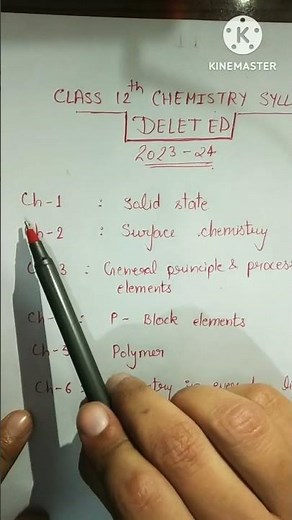 KINEMASTER
CLASS 12th CHEMISTRY SYLL
DELETED
2023-24
Ch-1 : Solid state
Ch-2 : Surface chemistry
Ch-3 : General principle & process
elements
Ch- : P- Block elements
Ch-5 Polymer
Ch-6 : in